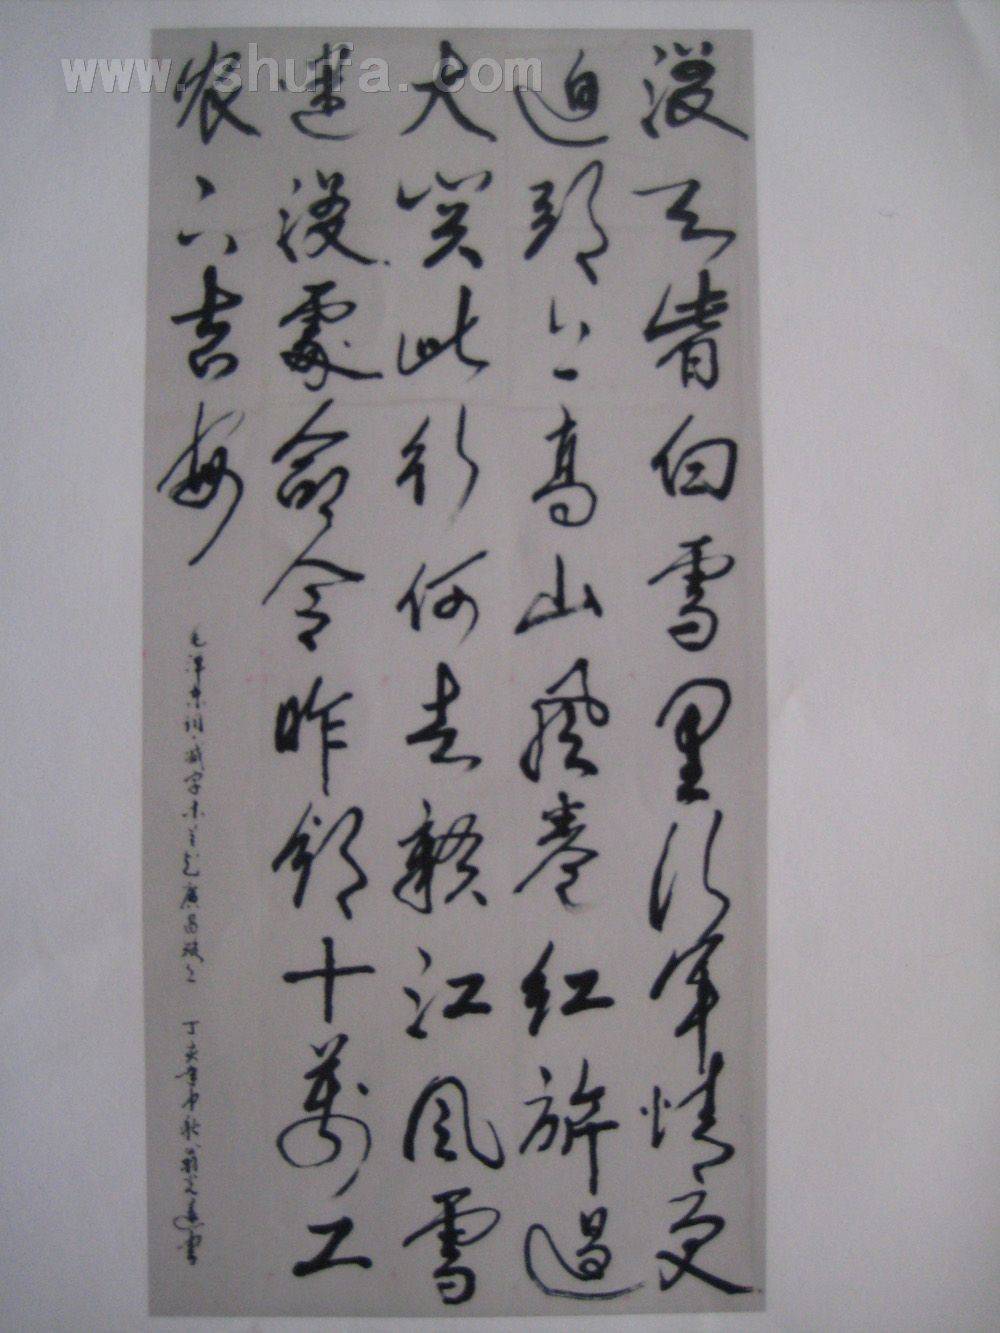 www.shufa.com
漫天皆白雪里行军情更
迫头上高山風卷红旗過
大关此行何去赣江风雪
迷漫處命令昨颁十萬工
农下吉安
毛泽东词减字木兰花廣昌路上 丁亥年中秋 書